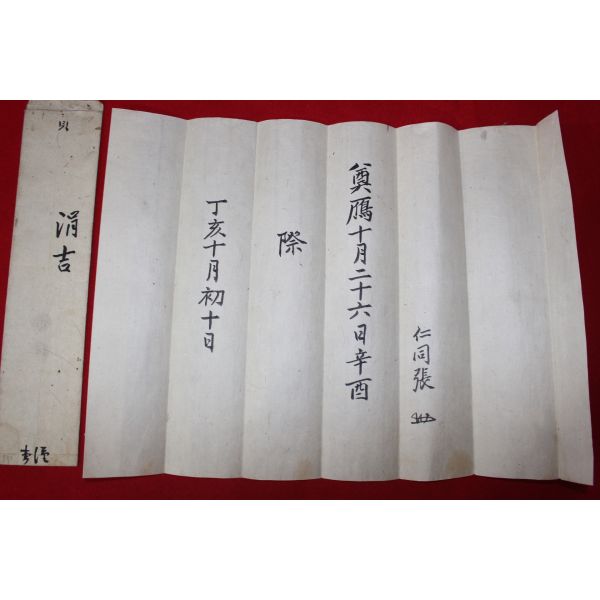 涓吉
仁同張
奠鴈十月二十六日辛酉
際
丁亥十月初十日